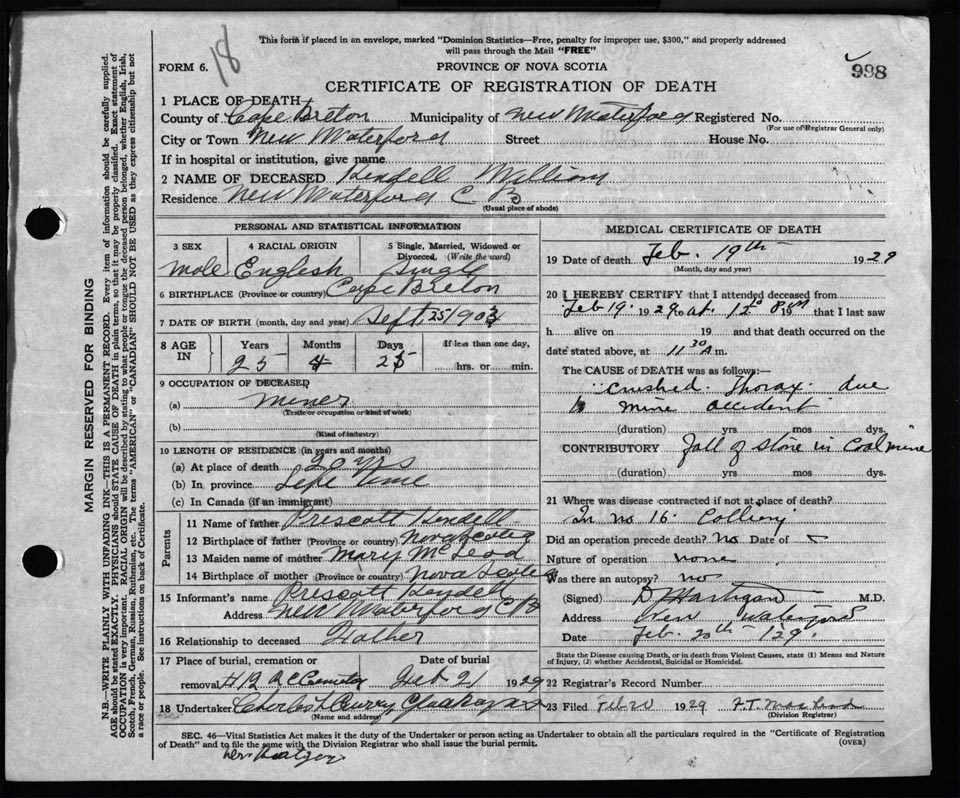 This form if placed in an envelope, marked "Dominion Statistics—Free, penalty for improper use, $300," and properly addressed
will pass through the Mail "FREE"
18
998
FORM 6.
PROVINCE OF NOVA SCOTIA
CERTIFICATE OF REGISTRATION OF DEATH
1 PLACE OF DEATH
County of Cape Breton Municipality of New Waterford Registered No.
(For use of Registrar General only)
City or Town New Waterford Street House No.
If in hospital or institution, give name
2 NAME OF DECEASED Kendell William
Residence New Waterford C B
(Usual place of abode)
PERSONAL AND STATISTICAL INFORMATION
3 SEX 4 RACIAL ORIGIN 5 Single, Married, Widowed or
Divorced. (Write the word)
Male English Single
6 BIRTHPLACE (Province or country) Cape Breton
7 DATE OF BIRTH (month, day and year) Sept. 25 1903
8 AGE IN Years Months Days If less than one day,
25 4 25 hrs. or min.
9 OCCUPATION OF DECEASED
(a) Miner
(Trade or occupation or kind of work)
(b)
(Kind of industry)
10 LENGTH OF RESIDENCE (in years and months)
(a) At place of death 20 yrs
(b) In province Life Time
(c) In Canada (if an immigrant)
Parents
11 Name of father Prescott Kendell
12 Birthplace of father (Province or country) Nova Scotia
13 Maiden name of mother Mary McLeod
14 Birthplace of mother (Province or country) Nova Scotia
15 Informant's name Prescott Kendell
Address New Waterford C B
16 Relationship to deceased Father
17 Place of burial, cremation or Date of burial
removal Feb 21 1929
18 Undertaker Charles Curry Glace Bay
(Name and address)
MEDICAL CERTIFICATE OF DEATH
19 Date of death Feb. 19th 1929
(Month, day and year)
20 I HEREBY CERTIFY that I attended deceased from
Feb 19 1929 to at. 12 PM 19 that I last saw
h alive on 19 and that death occurred on the
date stated above, at 11 30 A m.
The CAUSE of DEATH was as follows:—
Crushed Thorax due
to mine accident
(duration) yrs mos dys.
CONTRIBUTORY Fall of stone in Coal mine
(duration) yrs mos dys.
21 Where was disease contracted if not at place of death?
In no 16. Colliery
Did an operation precede death? No Date of
Nature of operation none
Was there an autopsy? no
(Signed) Hartigan M.D.
Address New Waterford
Date Feb. 20th - 129.
State the Disease causing Death, or in death from Violent Causes, state (1) Means and Nature
of Injury, (2) whether Accidental, Suicidal or Homicidal.
22 Registrar's Record Number
23 Filed Feb 20 1929 F.T. MacLeod
(Division Registrar)
SEC. 46—Vital Statistics Act makes it the duty of the Undertaker or person acting as Undertaker to obtain all the particulars required in the "Certificate of Registration
of Death" and to file the same with the Division Registrar who shall issue the burial permit.
(OVER)
MARGIN RESERVED FOR BINDING
N.B.—WRITE PLAINLY WITH UNFADING INK—THIS IS A PERMANENT RECORD. Every item of information should be carefully supplied.
AGE should be stated EXACTLY. PHYSICIANS should STATE CAUSE OF DEATH in plain terms, so that it may be properly classified. Exact statement of
OCCUPATION is very important. RACIAL ORIGIN will be described by stating to what people or tongue the deceased person belonged, whether English, Irish,
Scotch, French, German, Russian, Ruthenian, etc. The terms "AMERICAN" or "CANADIAN" SHOULD NOT BE USED as they express citizenship but not
a race or people. See instructions on back of Certificate.